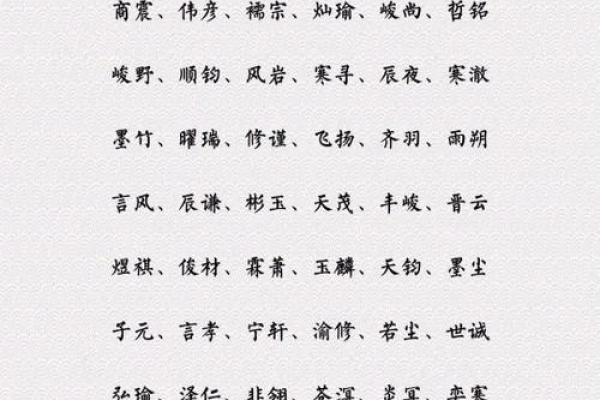 商震、伟彦、襦宗、灿瑜、峻尚、哲铭
峻野、顺钧、风岩、寒寻、辰夜、寒澈
墨竹、曜瑞、修谨、飞扬、齐羽、雨朔
言风、辰谦、彬玉、天茂、丰峻、晋云
煜祺、俊材、霖萧、玉麟、天钧、墨尘
子元、言孝、宁轩、渝修、若尘、世诚
弘瑜、泽仁、非翎、苍溟、炎冥、奕寒